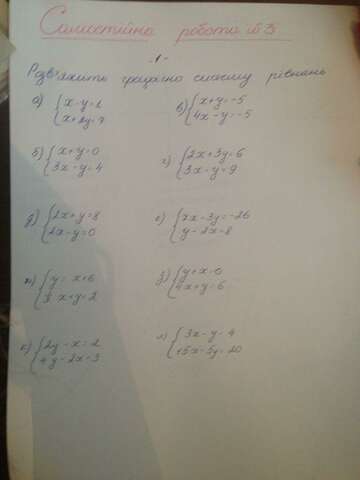 Самостійна робота №3
-1-
Розв'яжить графічно систему рівнянь
а) { x-y=1
x+2y=7
в) { x+y=-5
4x-y=-5
б) { x+y=0
3x-y=4
г) { 2x+3y=6
3x-y=9
д) { 2x+y=8
2x-y=0
е) { 7x-3y=-26
y-2x=8
ж) { y=x+6
x+y=2
з) { y+x=0
4x+y=6
к) { 2y-x=2
4y-2x=3
л) { 3x-y=4
15x-5y=20